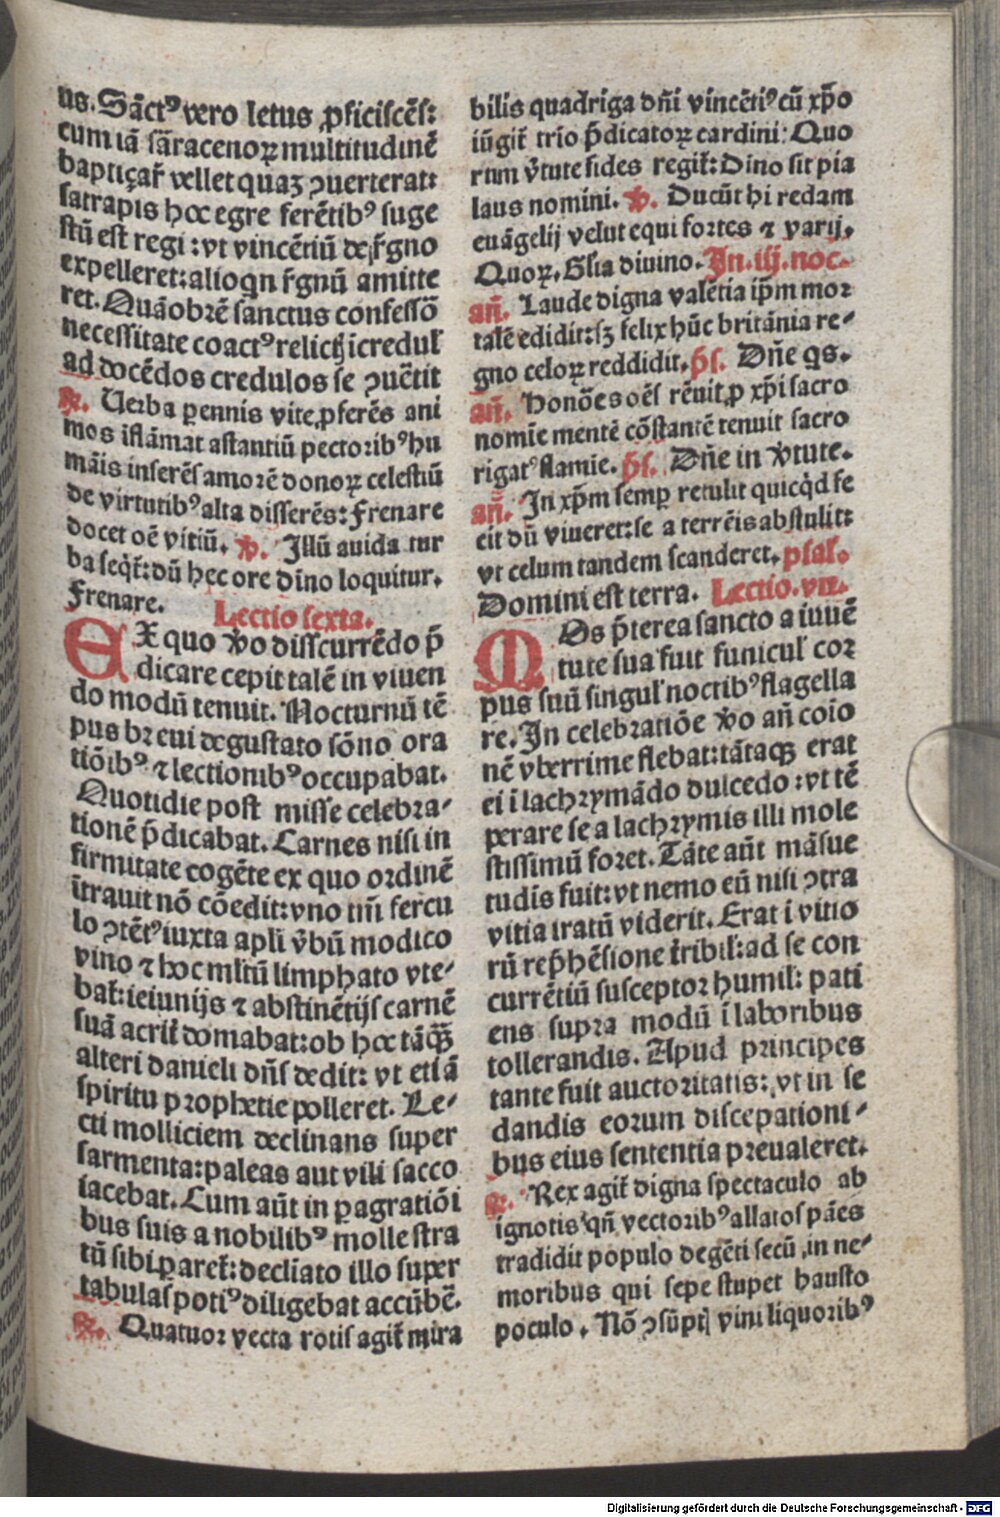 us. Sāctꝰ vero letus ꝓficiscēs:
cum iā sāracenoꝝ multitudinē
baptiçar̄ vellet quaꝫ ꝯuerterat:
satrapis hoc egre ferētibꝰ suge
stū est regi: vt vincētiū de r̄gno
expelleret: alioqn r̄gnū amitte
ret. Quāobrē sanctus confessō
necessitate coactꝰ relictꝭ īcredul̄
ad docēdos credulos se ꝯuētit
℟. Verba pennis vite ꝓferēs ani
mos īflāmat astantiū pectoribꝰ hu
māis inserēs amorē donoꝝ celestiū
de virtutibꝰ alta disserēs: Frenare
docet oē vitiū. ℣. Illū auida tur
ba seqt̄: dū hec ore dīno loquitur.
Frenare. Lectio sexta.
EX quo v̄o discurrēdo p̄
dicare cepit talē in viuen
do modū tenuit. Nocturnū tē
pus breui degustato sōno ora
tiōibꝰ ⁊ lectionibꝰ occupabat.
Quotidie post misse celebra⸗
tionē p̄dicabat. Carnes nisi in
firmitate cogēte ex quo ordinē
ītrauit nō cōedit: vno tm̄ fercu
lo ꝯtētꝰ iuxta apli v̄bū modico
vino ⁊ hoc ml̄tū limphato vte⸗
bat̄: ieiunijs ⁊ abstinētijs carnē
suā acrit̄ domabat: ob hoc tāqꝫ
alteri danieli dn̄s dedit: vt etiā
spiritu prophetie polleret. Le⸗
cti molliciem declinans super
sarmenta: paleas aut vili sacco
iacebat. Cum aūt in ꝑagratiōi
bus suis a nobilibꝰ molle stra
tū sibi ꝑaret̄: decliato illo super
tabulas potiꝰ diligebat accūbē.
℟. Quatuor vecta rotis agit̄ mira
bilis quadriga dn̄i vincētiꝰ cū xp̄o
iūgit̄ trīo p̄dicatoꝝ cardini: Quo
rum v̄tute fides regit̄: Dīno sit pia
laus nomini. ℣. Ducūt hi redam
euāgelij velut equi fortes ⁊ varij.
Quoꝝ. Glīa diuino. In. iij. noc.
an̄. Laude digna valētia ip̄m mor
talē edidit: sꝫ felix hūc britānia re⸗
gno celoꝝ reddidit. p̄s. Dn̄e qs.
an̄. Honōes oēs rēuit ꝓ xp̄i sacro
nomīe mentē cōstantē tenuit sacro
rigatꝰ flamīe. p̄s. Dn̄e in v̄tute.
an̄. In xp̄m semꝑ retulit quicqd fe
cit dū viueret: se a terrēis abstulit:
vt celum tandem scanderet. psal.
Domini est terra. Lectio. vii.
MOs p̄terea sancto a iuuē
tute sua fuit funicul̄ cor
pus suū singul̄ noctibꝰ flagella
re. In celebratiōe v̄o an̄ coīo
nē vberrime flebat: tātaqꝫ erat
ei ī lachrymādo dulcedo: vt tē
perare se a lachrymis illi mole
stissimū foret. Tāte aūt māsue
tudīs fuit: vt nemo eū nisi ꝯtra
vitia iratū viderit. Erat ī vitio
rū rep̄hēsione t̄ribil̄: ad se con
currētiū susceptor humil̄: pati
ens supra modū ī laboribus
tollerandis. Apud principes
tante fuit auctoritatis: vt in se
dandis eorum discepationi⸗
bus eius sententia preualeret.
℟. Rex agit̄ digna spectaculo ab
ignotis qn̄ vectoribꝰ allatos pāes
tradidit populo degēti secū in ne⸗
moribus qui sepe stupet hausto
poculo. Nō ꝯsūptꝭ vini liquoribꝰ
Digitalisierung gefördert durch die Deutsche Forschungsgemeinschaft - DFG